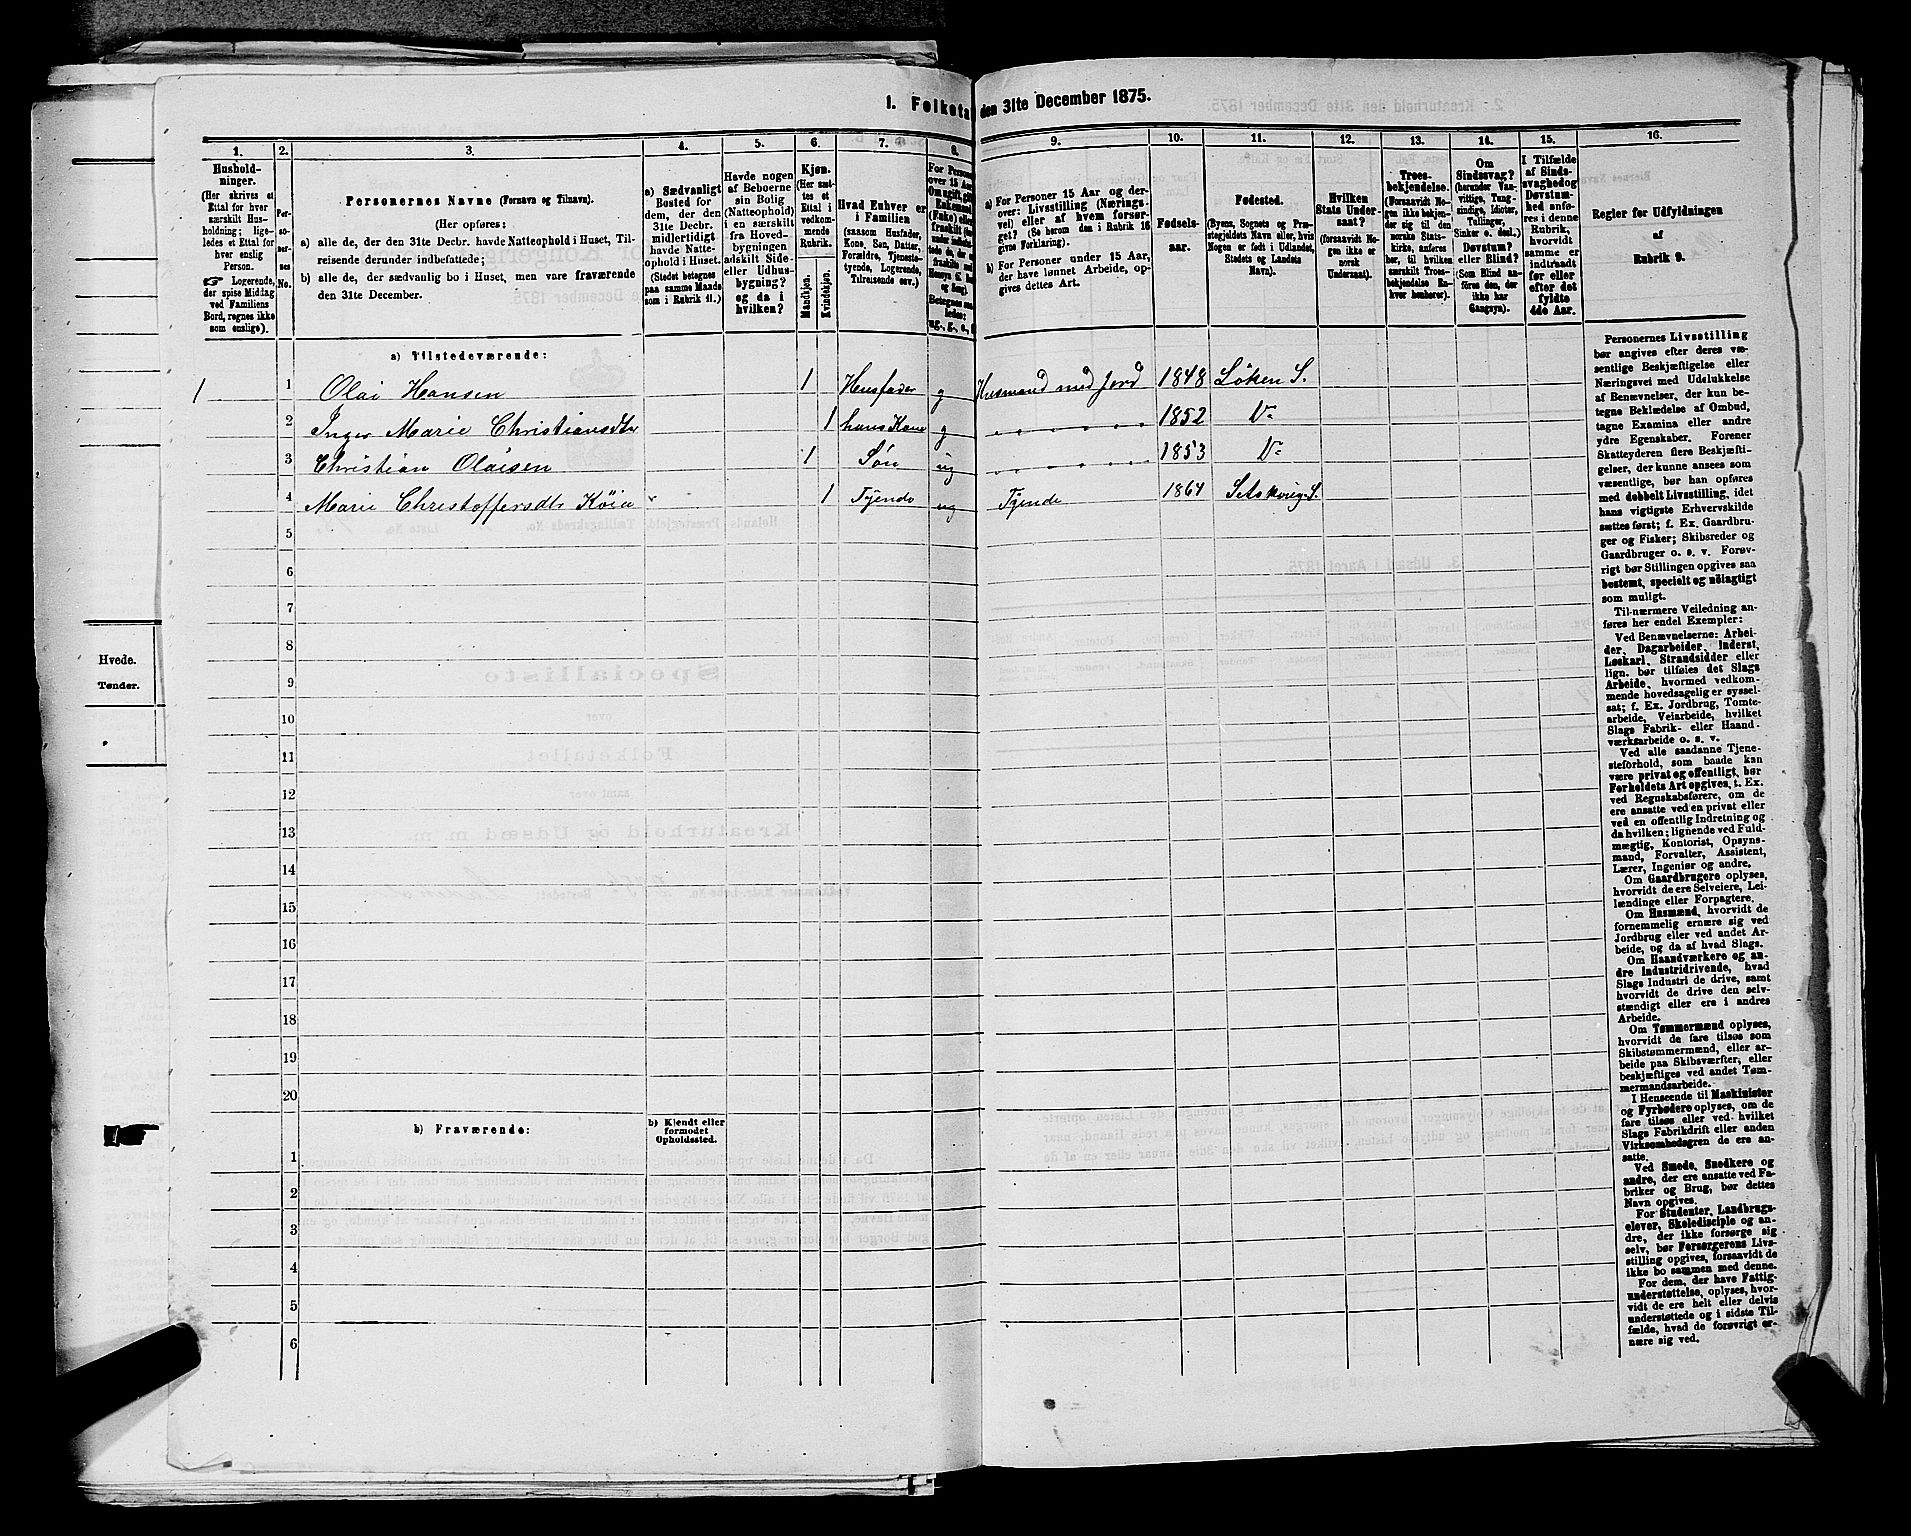 1. Folketa den 31te December 1875.
1.
2.
3.
4.
5.
6.
7.
8.
9.
10.
11.
12.
13.
14.
15.
16.
Hushold-
ninger.
(Her skrives et
Ettal for hver
særskilt Hus-
holdning; lige-
ledes et Ettal for
hver enslig
Person.
☞ Logerende,
der spise Middag
ved Familiens
Bord, regnes ikke
som enslige).
Per-
so-
ner-
nes
No.
Personernes Navne (Fornavn og Tilnavn).
(Her opføres:
a) alle de, der den 31te Decbr. havde Natteophold i Huset, Til-
reisende derunder indbefattede;
b) alle de, der sædvanlig bo i Huset, men vare fraværende
den 31te December.
a) Sædvanligt
Bosted for
dem, der den
31te Decbr.
midlertidigt
havde Natte-
ophold i Huset.
(Stedet betegnes
paa samme Maade
som i Rubrik 11.)
Havde nogen
af Beboerne
sin Bolig
(Natteophold)
i en særskilt
fra Hoved-
bygningen
adskilt Side-
eller Udhus-
bygning?
og da i
hvilken?
Kjøn.
(Her sæt-
tes et
Ettal i
vedkom-
mende
Rubrik.
Mandkjøn.
Kvindekjøn.
Hvad Enhver er
i Familien
(saasom Husfader,
Kone, Søn, Datter,
Forældre, Tjeneste-
tyende, Logerende,
Tilreisende osv.)
a) For Personer 15 Aar og der-
over: Livsstilling (Nærings-
vei) eller af hvem forsør-
get? (Se herom den i Rubrik 16
givne Forklaring).
b) For Personer under 15 Aar,
der have lønnet Arbeide, op-
gives dettes Art.
Fødsels-
aar.
Fødested.
(Byens, Sognets og Præ-
stegjeldets Navn eller, hvis
Nogen er født i Udlandet,
Stedets og Landets
Navn).
Hvilken
Stats Under-
saat?
(forsaavidt No-
gen ikke er
norsk
Undersaat).
Troes-
bekjendelse.
(Forsaavidt No-
gen ikke bekjen-
der sig til den
norske Stats-
kirke, anføres
her, til hvilken
særskilt Troes-
bekjendelse En-
hver henhører).
Om
Sindssvag?
(herunder Van-
vittige, Tung-
sindige, Idioter,
Tullinger,
Sinker o. desl.)
Døvstum?
eller Blind?
(Som Blind an-
føres den, der
ikke har
Gangsyn).
I Tilfælde
af Sinds-
svaghed og
Døvstum-
hed anfø-
res i denne
Rubrik,
hvorvidt
samme er
indtraadt
før eller
efter det
fyldte
4de Aar.
Regler for Udfyldningen
af
Rubrik 9.
a) Tilstedeværende:
1 1 Olai Hansen 1 Husfader g Husmand med Jord 1848 Löken S.
2 Inger Marie Christiansdtr 1 hans Kone g 1852 Do
3 Christian Olaisen 1 Søn ug 1853 Do
4 Marie Christoffersdtr Köia 1 Tyende ug Tyende 1864 Setskoug S.
5
6
7
8
9
10
11
12
13
14
15
16
17
18
19
20
b) Fraværende:
b) Kjendt eller
formodet
Opholdssted.
1
2
3
4
5
6
Personernes Livsstilling
bør angives efter deres væ-
sentlige Beskjæftigelse eller
Næringsvei med Udelukkelse
af Benævnelser, der kun be-
tegne Beklædelse af Ombud,
tagne Examina eller andre
ydre Egenskaber. Forener
Skatteyderen flere Beskjæfti-
gelser, der kunne ansees som
væsentlige, bør han opføres
med dobbelt Livsstilling, idet
hans vigtigste Erhvervskilde
sættes først; f. Ex. Gaardbru-
ger og Fisker; Skibsreder og
Gaardbruger o. s. v. Forøv-
rigt bør Stillingen opgives saa
bestemt, specielt og nøiagtigt
som muligt.
Til nærmere Veiledning an-
føres her endel Exempler:
Ved Benævnelserne: Arbei-
der, Dagarbeider, Inderst,
Løskarl, Strandsidder eller
lign. bør tilføies det Slags
Arbeide, hvormed vedkom-
mende hovedsagelig er syssel-
sat; f. Ex. Jordbrug, Tomte-
arbeide, Veiarbeide, hvilket
Slags Fabrik- eller Haand-
værksarbeide o. s. v.
Ved alle saadanne Tjene-
steforhold, som baade kan
være privat og offentligt, bør
Forholdets Art opgives, t. Ex.
ved Regnskabsførere, om de
ere ansatte ved en privat eller
ved en offentlig Indretning og
da hvilken; lignende ved Fuld-
mægtig, Kontorist, Opsyns-
mand, Forvalter, Assistent,
Lærer, Ingeniør og andre.
Om Gaardbrugere oplyses,
hvorvidt de ere Selveiere, Lei-
lændinge eller Forpagtere.
Om Husmænd, hvorvidt de
fornemmelig ernære sig ved
Jordbrug eller ved andet Ar-
beide, og da af hvad Slags.
Om Haandværkere og an-
dre Industridrivende, hvad
Slags Industri de drive, samt
hvorvidt de drive den selv-
stændigt eller ere i andres
Arbeide.
Om Tømmermænd oplyses,
hvorvidt de fare tilsøs som
Skibstømmermænd, eller ar-
beide paa Skibsværfter, eller
beskjæftiges ved andet Tøm-
mermandsarbeide.
I Henseende til Maskinister
og Fyrbødere oplyses, om de
fare tilsøs eller ved hvilket
Slags Fabrikdrift eller anden
Virksomhedsgren de ere an-
satte.
Ved Smede, Snedkere og
andre, der ere ansatte ved Fa-
briker og Brug, bør dettes
Navn opgives.
For Studenter, Landbrugs-
elever, Skoledisciple og an-
dre, der ikke forsørge sig
selv, bør Forsørgerens Livs-
stilling opgives, forsaavidt de
ikke bo sammen med denne.
For dem, der have Fattig-
understøttelse, oplyses, hvor-
vidt de ere helt eller delvis
understøttede og i sidste Til-
fælde, hvad de forøvrigt er-
nære sig ved.
Hvede.
Tønder.